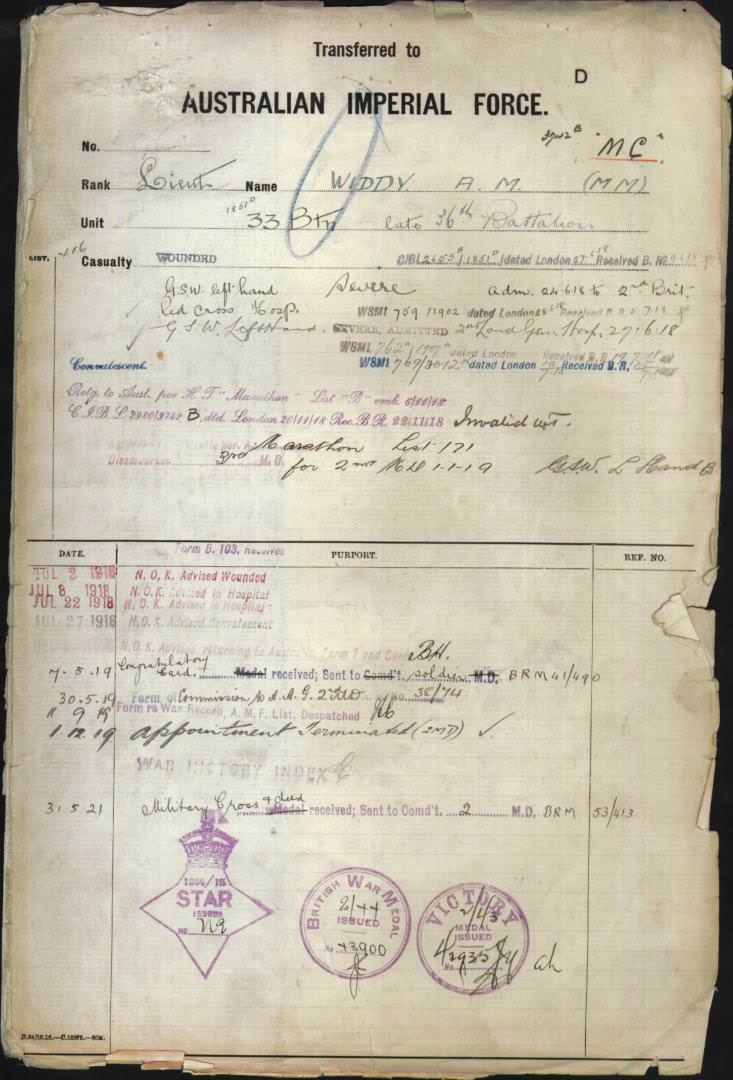 Transferred to
D
AUSTRALIAN IMPERIAL FORCE.
No.
"MC"
Rank Lieut Name WIDDY. A. M. (MM)
1851D
Unit 33 Btn late 36th Battalion
LIST.
Casualty WOUNDED dated London Received B. R.
G.S.W. left hand Severe adm. 24.6.18 to 2nd Brit.
Red Cross Hosp. WSMI 759 11902 dated London Received
G.S.W. Left Hand. SEVERE, ADMITTED 2nd Lond Gen. Hosp. 27.6.18
WSMI 762 dated London Received B.R.
Convalescent. WSMI 769 dated London Received B. R.
Retg. to Aust. per H T "Marathon" List "B" emb 5/11/18
C.I.B.L. B dtd. London 20/11/18 Rec. B.R. 22/11/18 Invalid
Marathon List 171
3rd M.D. for 2nd MD 1-1-19 G.S.W. L Hand B
Form B. 103, Received
DATE. PURPORT. REF. NO.
JUL 2 1918 N. O. K. Advised Wounded
JUL 8 1918 N. O. K. Advised in Hospital
JUL 22 1918 N. O. K. Advised in Hospital
JUL 27 1918 N. O. K. Advised Convalescent
N. O. K. Advised returning to Australia, Form I and Card
BH.
7-5-19 Congratulatory Card. Medal received; Sent to Comd't. soldier M.D. BRM 41/490
30.5.19 Form of Commission to A.A.G. 2 No. 38/74
11 9 19 Form re War Record, A. M. F. List, Despatched
1.12.19 Appointment Terminated (2MD) ✓
WAR HISTORY INDEX
31.5.21 Military Cross & deed Medal received; Sent to Comd't. 2 M.D. BRM 53/413
1914/15
STAR
ISSUED
No
BRITISH WAR MEDAL
2/44
ISSUED
No 43900
VICTORY
2/43
MEDAL
ISSUED
No. 42935
ah